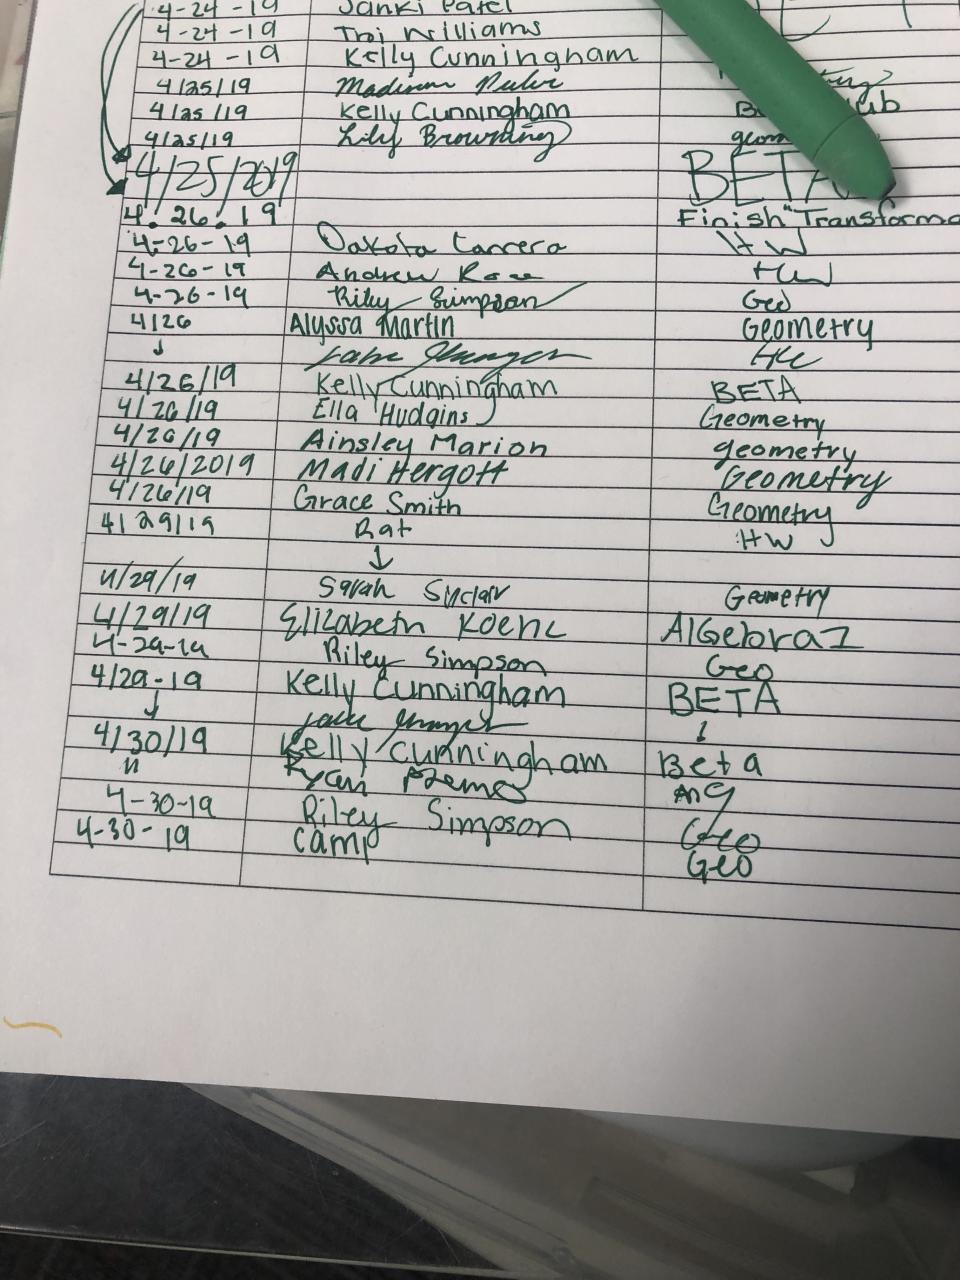 4-24-19 Janki Patel
4-24-19 Williams
4-24-19 Kelly Cunningham
4/25/19 Madison
4/25/19 Kelly Cunningham
4/25/19 Lily Browning
4/25/2019 BETA
4.26.19 Finish "Transforma
4-26-19 Dakota Carrera HW
4-26-19 Andrew HW
4-26-19 Riley Simpson Geo
4/26 Alyssa Martin Geometry
↓
4/26/19 Kelly Cunningham BETA
4/26/19 Ella Hudgins Geometry
4/26/19 Ainsley Marion geometry
4/26/2019 Madi Hergott Geometry
4/26/19 Grace Smith Geometry
4/29/19 Rat HW
↓
4/29/19 Sarah Sinclair Geometry
4/29/19 Elizabeth Algebra 1
4-29-19 Riley Simpson Geo
4/29-19 Kelly Cunningham BETA
↓ ↓
4/30/19 Kelly Cunningham Beta
" Ryan
4-30-19 Riley Simpson Geo
4-30-19 Camp Geo